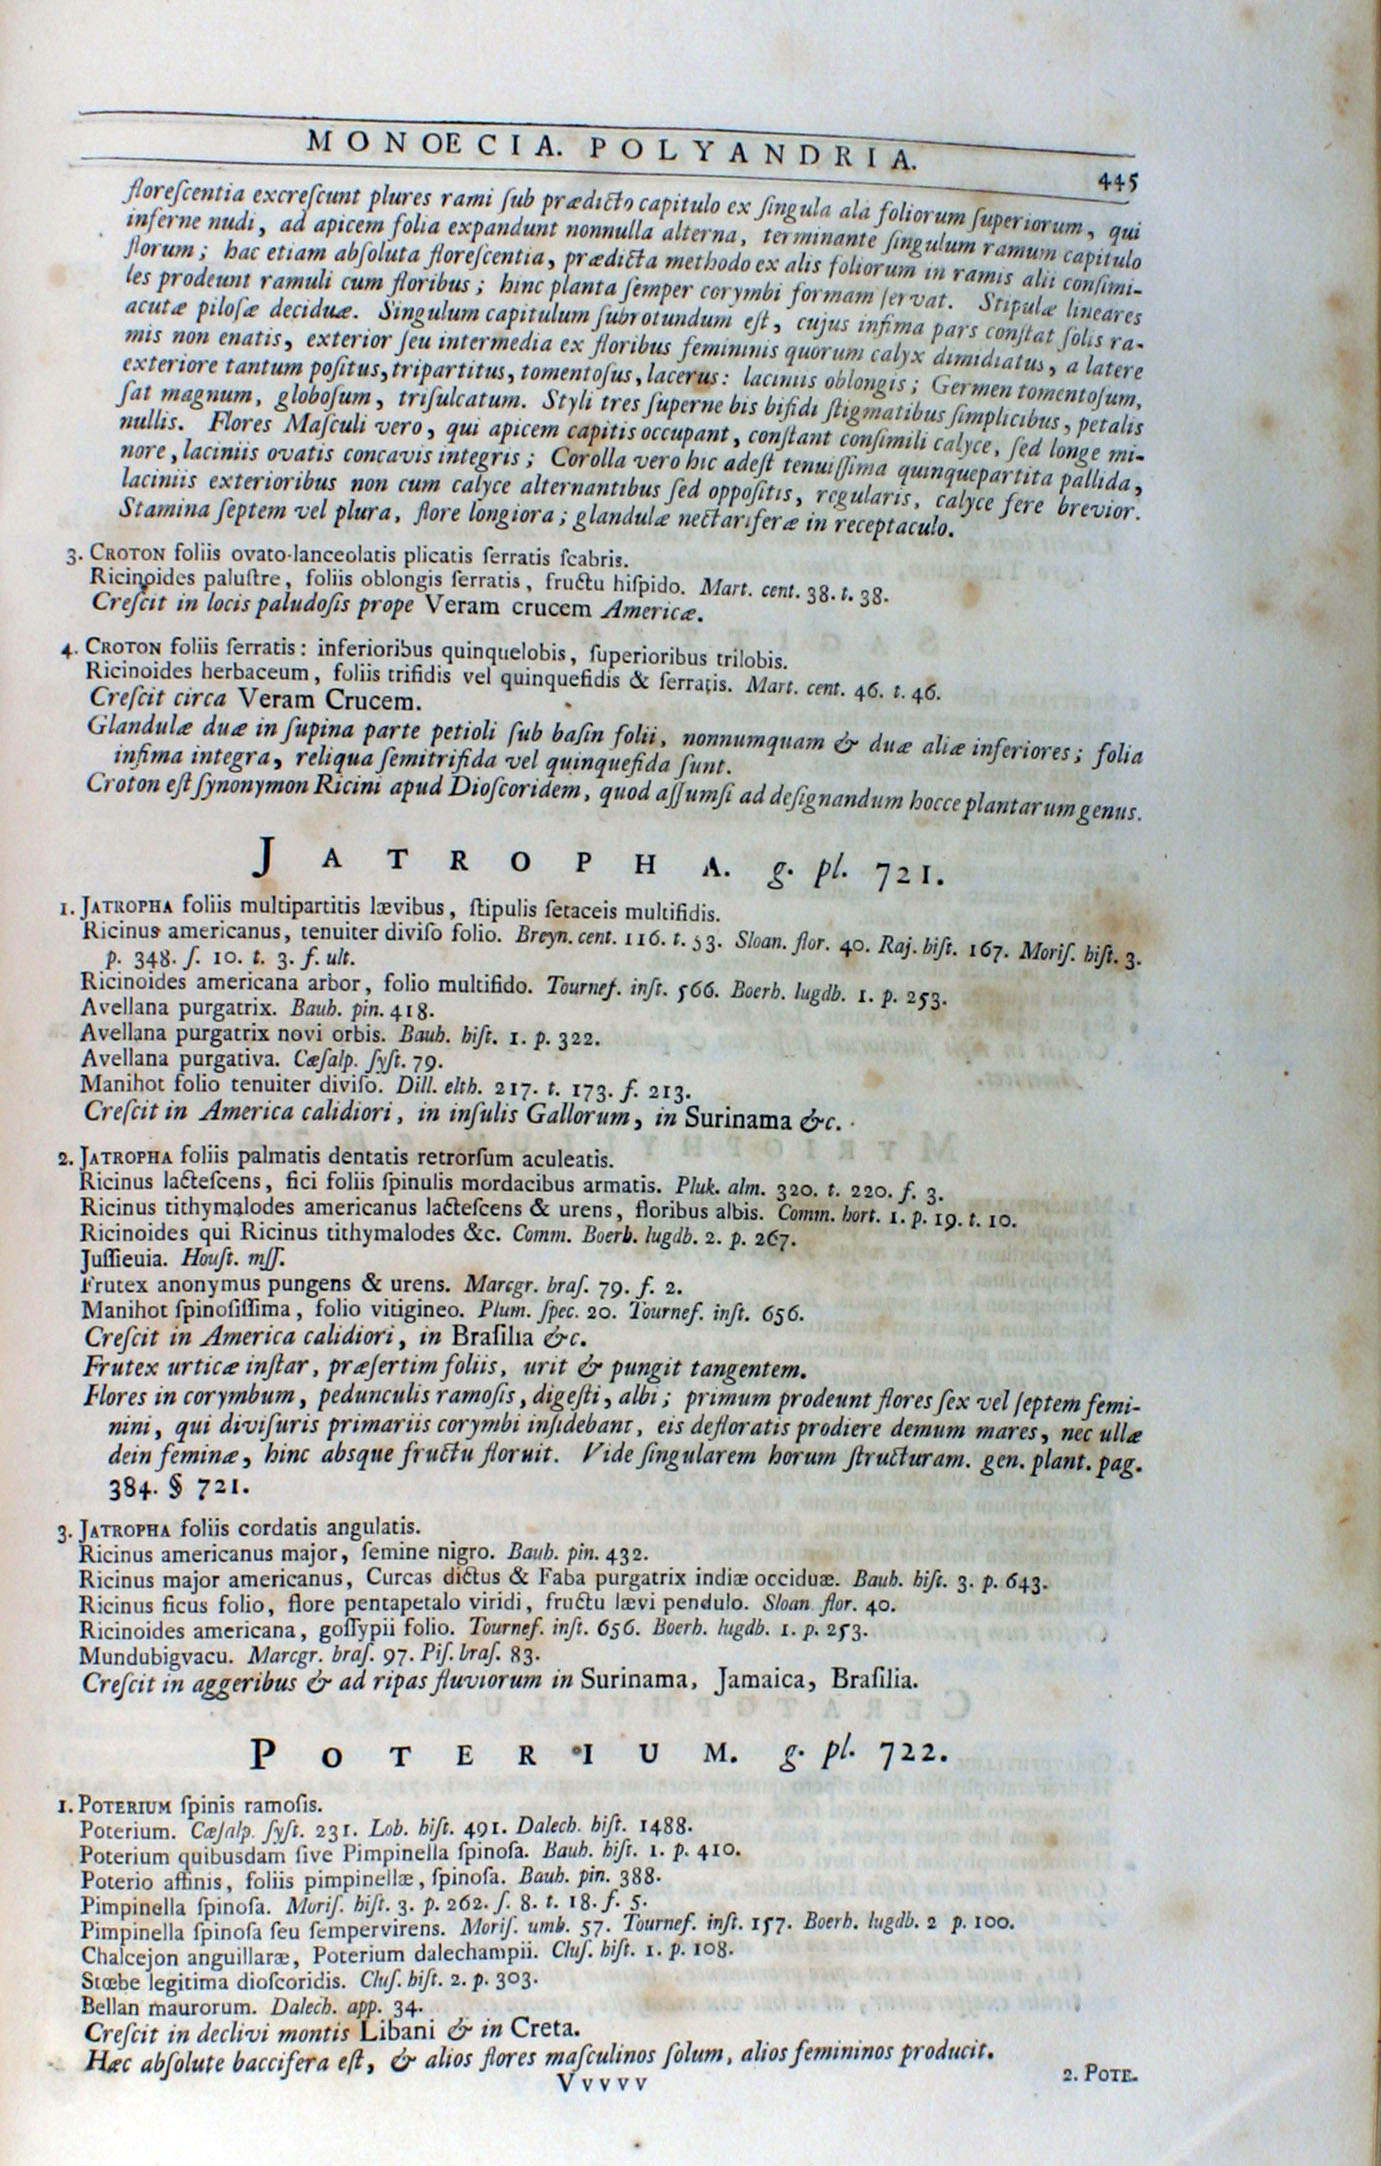 MONOECIA. POLYANDRIA.
445
floreſcentia excreſcunt plures rami ſub prædicto capitulo ex ſingula alâ foliorum ſuperiorum, qui
inferne nudi, ad apicem folia expandunt nonnulla alterna, terminante ſingulum ramum capitulo
florum; hac etiam abſoluta floreſcentia, prædicta methodo ex alis foliorum in ramis alii conſimi-
les prodeunt ramuli cum floribus; hinc planta ſemper corymbi formam ſervat. Stipulæ lineares
acutæ piloſæ deciduæ. Singulum capitulum ſubrotundum eſt, cujus infima pars conſtat ſolis ra-
mis non enatis, exterior ſeu intermedia ex floribus femininis quorum calyx dimidiatus, a latere
exteriore tantum poſitus, tripartitus, tomentoſus, lacerus: laciniis oblongis; Germen tomentoſum,
ſat magnum, globoſum, triſulcatum. Styli tres ſuperne bis bifidi ſtigmatibus ſimplicibus, petalis
nullis. Flores Maſculi vero, qui apicem capitis occupant, conſtant conſimili calyce, ſed longe mi-
nore, laciniis ovatis concavis integris; Corolla vero hic adeſt tenuiſſima quinquepartita pallida,
laciniis exterioribus non cum calyce alternantibus ſed oppoſitis, regularis, calyce fere brevior.
Stamina ſeptem vel plura, flore longiora; glandulæ nectariferæ in receptaculo.
3. CROTON foliis ovato-lanceolatis plicatis ſerratis ſcabris.
Ricinoides paluſtre, foliis oblongis ſerratis, fructu hiſpido. Mart. cent. 38. t. 38.
Creſcit in locis paludoſis prope Veram crucem Americæ.
4. CROTON foliis ſerratis: inferioribus quinquelobis, ſuperioribus trilobis.
Ricinoides herbaceum, foliis trifidis vel quinquefidis & ſerratis. Mart. cent. 46. t. 46.
Creſcit circa Veram Crucem.
Glandulæ duæ in ſupina parte petioli ſub baſin folii, nonnumquam & duæ aliæ inferiores; folia
infima integra, reliqua ſemitrifida vel quinquefida ſunt.
Croton eſt ſynonymon Ricini apud Dioſcoridem, quod aſſumſi ad deſignandum hocce plantarum genus.
JATROPHA. g. pl. 721.
1. JATROPHA foliis multipartitis lævibus, ſtipulis ſetaceis multifidis.
Ricinus americanus, tenuiter diviſo folio. Breyn. cent. 116. t. 53. Sloan. flor. 40. Raj. hiſt. 167. Moriſ. hiſt. 3.
p. 348. ſ. 10. t. 3. f. ult.
Ricinoides americana arbor, folio multifido. Tournef. inſt. 566. Boerh. lugdb. 1. p. 253.
Avellana purgatrix. Bauh. pin. 418.
Avellana purgatrix novi orbis. Bauh. hiſt. 1. p. 322.
Avellana purgativa. Cæſalp. ſyſt. 79.
Manihot folio tenuiter diviſo. Dill. elth. 217. t. 173. f. 213.
Creſcit in America calidiori, in inſulis Gallorum, in Surinama &c.
2. JATROPHA foliis palmatis dentatis retrorſum aculeatis.
Ricinus lacteſcens, fici foliis ſpinulis mordacibus armatis. Pluk. alm. 320. t. 220. f. 3.
Ricinus tithymalodes americanus lacteſcens & urens, floribus albis. Comm. hort. 1. p. 19. t. 10.
Ricinoides qui Ricinus tithymalodes &c. Comm. Boerh. lugdb. 2. p. 267.
Juſſieuia. Houſt. mſſ.
Frutex anonymus pungens & urens. Marcgr. braſ. 79. f. 2.
Manihot ſpinoſiſſima, folio vitigineo. Plum. ſpec. 20. Tournef. inſt. 656.
Creſcit in America calidiori, in Braſilia &c.
Frutex urticæ inſtar, præſertim foliis, urit & pungit tangentem.
Flores in corymbum, pedunculis ramoſis, digeſti, albi; primum prodeunt flores ſex vel ſeptem femi-
nini, qui diviſuris primariis corymbi inſidebant, eis defloratis prodiere demum mares, nec ullæ
dein feminæ, hinc absque fructu floruit. Vide ſingularem horum ſtructuram. gen. plant. pag.
384. § 721.
3. JATROPHA foliis cordatis angulatis.
Ricinus americanus major, ſemine nigro. Bauh. pin. 432.
Ricinus major americanus, Curcas dictus & Faba purgatrix indiæ occiduæ. Bauh. hiſt. 3. p. 643.
Ricinus ficus folio, flore pentapetalo viridi, fructu lævi pendulo. Sloan. flor. 40.
Ricinoides americana, goſſypii folio. Tournef. inſt. 656. Boerh. lugdb. 1. p. 253.
Mundubigvacu. Marcgr. braſ. 97. Piſ. braſ. 83.
Creſcit in aggeribus & ad ripas fluviorum in Surinama, Jamaica, Braſilia.
POTERIUM. g. pl. 722.
1. POTERIUM ſpinis ramoſis.
Poterium. Cæſalp. ſyſt. 231. Lob. hiſt. 491. Dalech. hiſt. 1488.
Poterium quibusdam ſive Pimpinella ſpinoſa. Bauh. hiſt. 1. p. 410.
Poterio affinis, foliis pimpinellæ, ſpinoſa. Bauh. pin. 388.
Pimpinella ſpinoſa. Moriſ. hiſt. 3. p. 262. ſ. 8. t. 18. f. 5.
Pimpinella ſpinoſa ſeu ſempervirens. Moriſ. umb. 57. Tournef. inſt. 157. Boerh. lugdb. 2 p. 100.
Chalcejon anguillaræ, Poterium dalechampii. Cluſ. hiſt. 1. p. 108.
Stœbe legitima dioſcoridis. Cluſ. hiſt. 2. p. 303.
Bellan maurorum. Dalech. app. 34.
Creſcit in declivi montis Libani & in Creta.
Hæc abſolute baccifera eſt, & alios flores maſculinos ſolum, alios femininos producit.
Vvvvv
2. POTE-